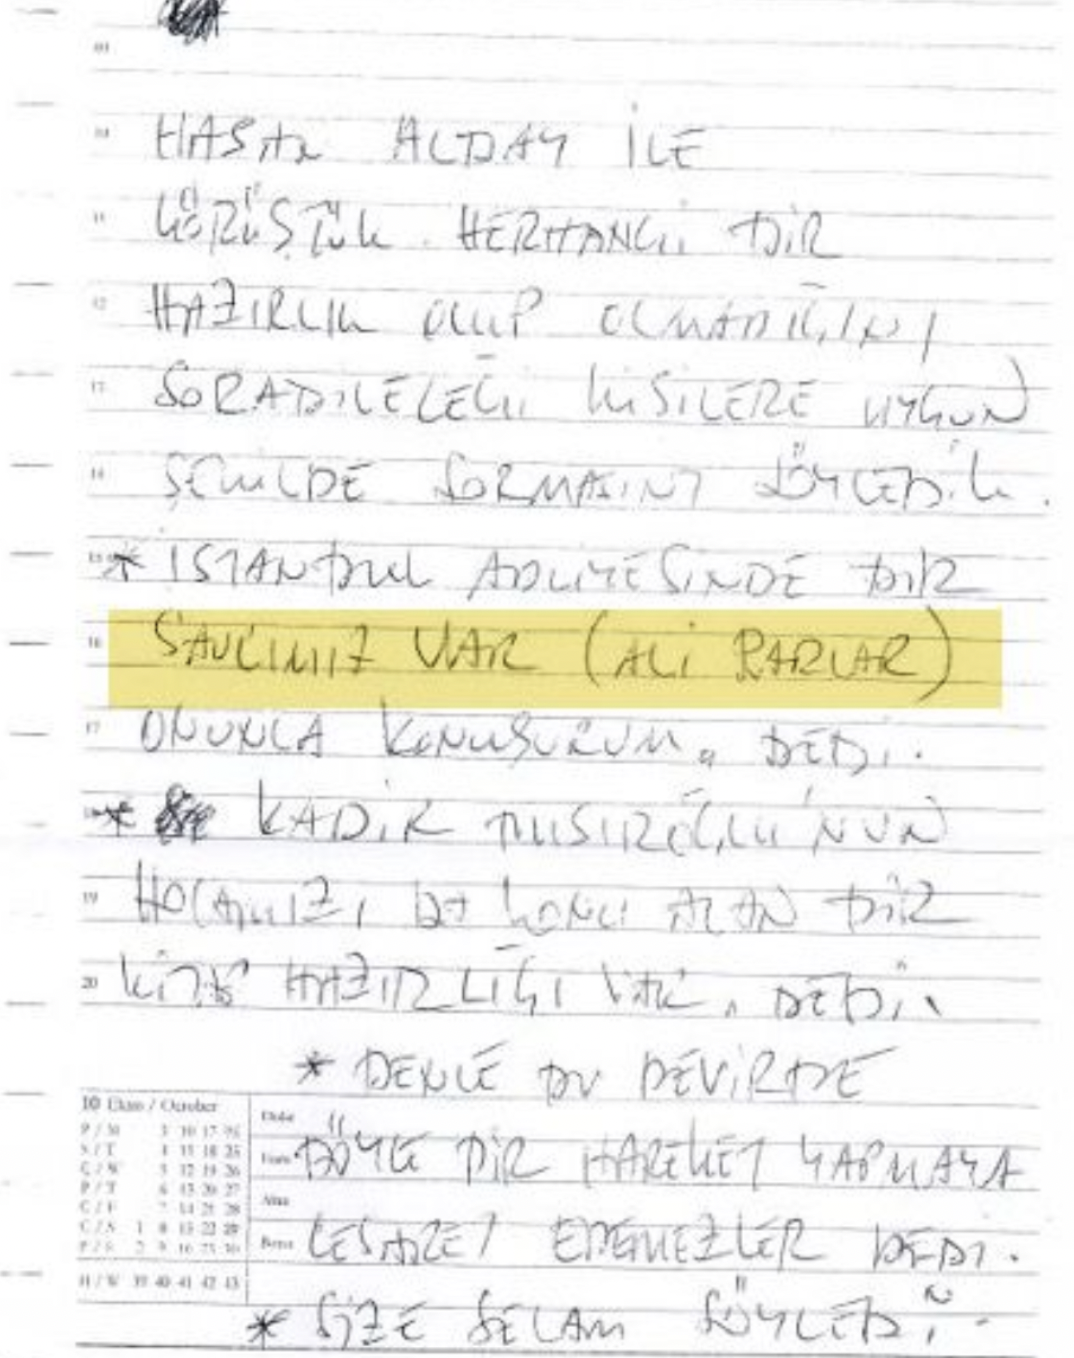 HASAN ALDAY İLE
GÖRÜŞTÜK. HERHANGİ BİR
HAZIRLIK OLUP OLMADIĞINI
SORABİLECEĞİ KİŞİLERE UYGUN
ŞEKİLDE SORMASINI SÖYLEDİK.
* İSTANBUL ADLİYESİNDE BİR
SAVCIMIZ VAR (ALİ PARLAR)
ONUNLA KONUŞURUM, DEDİ.
* KADİR MISIROĞLU'NUN
HOCAMIZI DA KONU ALAN BİR
KİTAP HAZIRLIĞI VAR, DEDİ.
* BENCE BU DEVİRDE
BÖYLE BİR HAREKET YAPMAYA
CESARET EDEMEZLER DEDİ.
* SİZE SELAM SÖYLEDİ.
10 Ekim / October
P / M 3 10 17
S / T 4 11 18 25
Ç / W 5 12 19 26
P / T 6 13 20 27
C / F 7 14 21 28
C / S 1 8 15 22 29
P / S 2 9 16 23 30
H / W 39 40 41 42 43